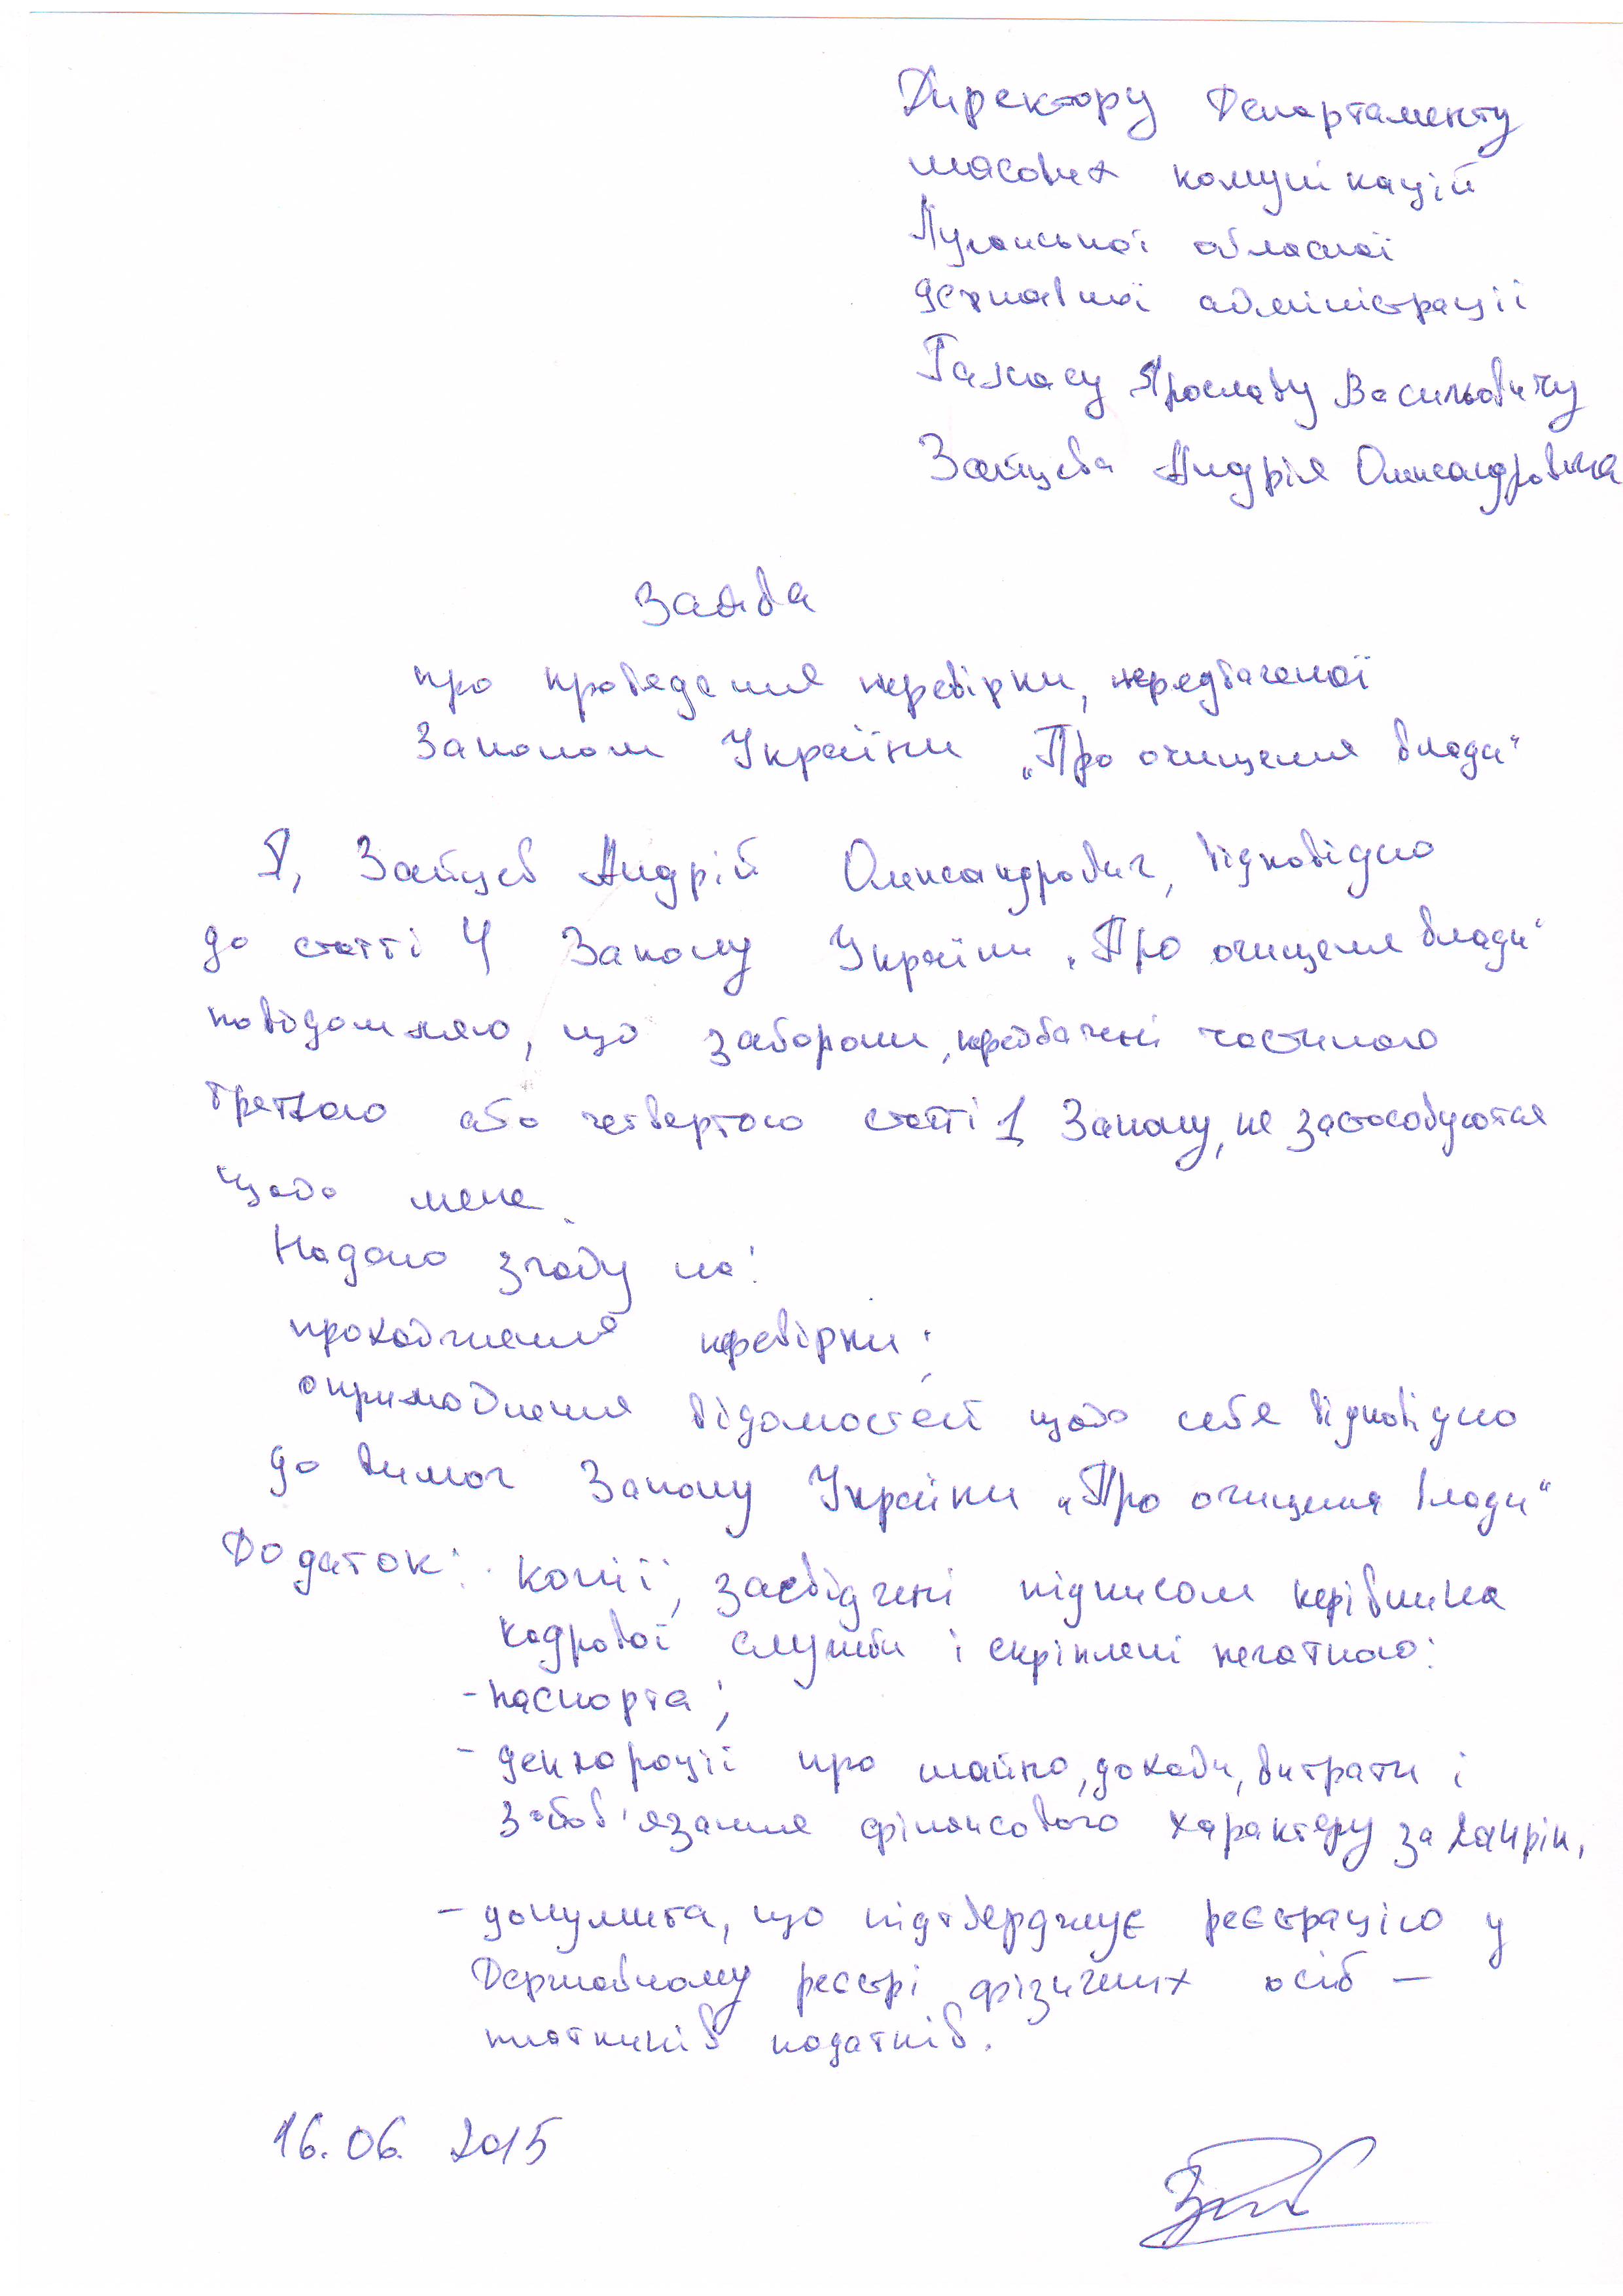 Директору Департаменту
масових комунікацій
Луганської обласної
державної адміністрації
Галасу Ярославу Васильовичу
Зайцева Андрія Олександровича
Заява
про проведення перевірки, передбаченої
Законом України „Про очищення влади"
Я, Зайцев Андрій Олександрович, відповідно
до статті 4 Закону України „Про очищення влади"
повідомляю, що заборони, передбачені частиною
третьою або четвертою статті 1 Закону, не застосовуються
щодо мене.
Надаю згоду на:
проходження перевірки;
оприлюднення відомостей щодо себе відповідно
до вимог Закону України „Про очищення влади"
Додаток: копії, засвідчені підписом керівника
кадрової служби і скріплені печаткою:
- паспорта;
- декларації про майно, доходи, витрати і
зобов'язання фінансового характеру за 2014 рік,
- документа, що підтверджує реєстрацію у
Державному реєстрі фізичних осіб –
платників податків.
16.06.2015